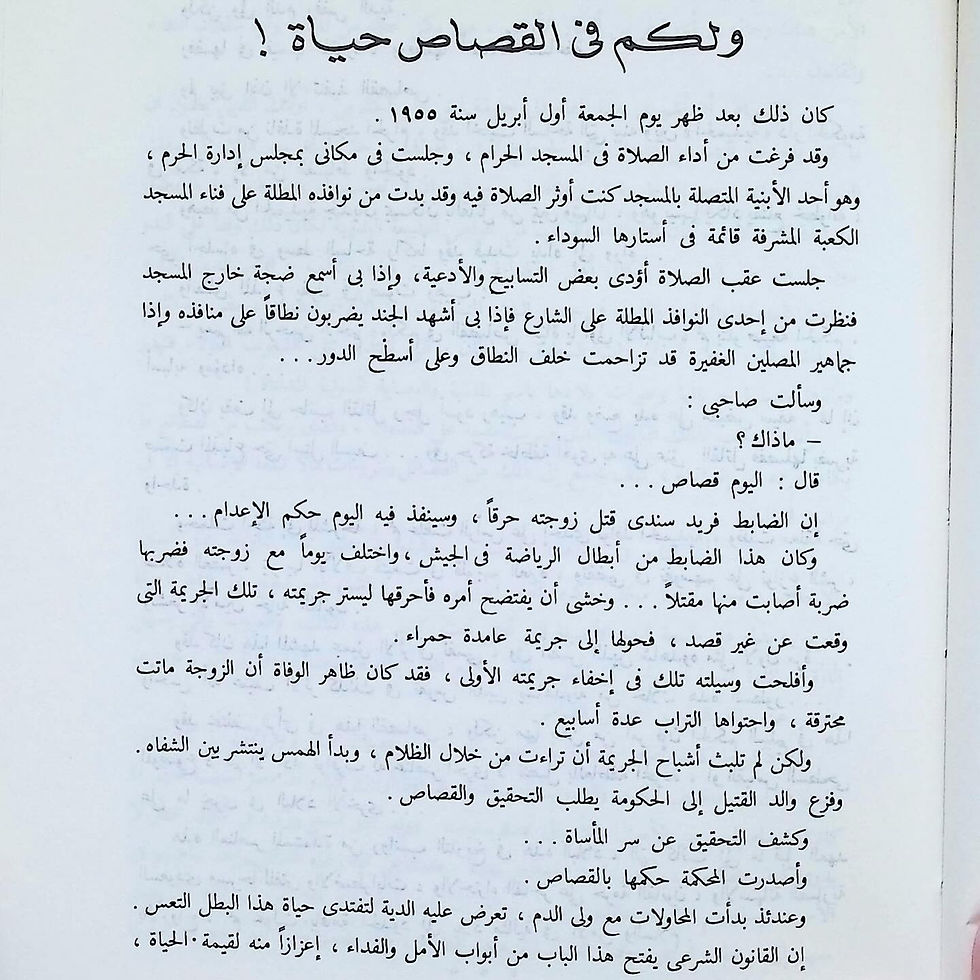 ولكم فى القصاص حياة !
كان ذلك بعد ظهر يوم الجمعة أول أبريل سنة ١٩٥٥ .
وقد فرغت من أداء الصلاة فى المسجد الحرام ، وجلست فى مكانى بمجلس إدارة الحرم ،
وهو أحد الأبنية المتصلة بالمسجد كنت أوثر الصلاة فيه وقد بدت من نوافذه المطلة على فناء المسجد
الكعبة المشرفة قائمة فى أستارها السوداء .
جلست عقب الصلاة أؤدى بعض التسابيح والأدعية، وإذا بى أسمع ضجة خارج المسجد
فنظرت من إحدى النوافذ المطلة على الشارع فإذا بى أشهد الجند يضربون نطاقاً على منافذه وإذا
جماهير المصلين الغفيرة قد تزاحمت خلف النطاق وعلى أسطح الدور...
وسألت صاحبى :
– ماذاك ؟
قال : اليوم قصاص ...
إن الضابط فريد سندى قتل زوجته حرقاً ، وسينفذ فيه اليوم حكم الإعدام ...
وكان هذا الضابط من أبطال الرياضة فى الجيش ، واختلف يوماً مع زوجته فضربها
ضربة أصابت منها مقتلاً ... وخشى أن يفتضح أمره فأحرقها ليستر جريمته ، تلك الجريمة التى
وقعت عن غير قصد ، فحولها إلى جريمة عامدة حمراء .
وأفلحت وسيلته تلك فى إخفاء جريمته الأولى ، فقد كان ظاهر الوفاة أن الزوجة ماتت
محترقة ، واحتواها التراب عدة أسابيع .
ولكن لم تلبث أشباح الجريمة أن تراءت من خلال الظلام ، وبدأ الهمس ينتشر بين الشفاه .
وفزع والد القتيل إلى الحكومة يطلب التحقيق والقصاص .
وكشف التحقيق عن سر المأساة ...
وأصدرت المحكمة حكمها بالقصاص .
وعندئذ بدأت المحاولات مع ولى الدم ، تعرض عليه الدية لتفتدى حياة هذا البطل التعس .
إن القانون الشرعى يفتح هذا الباب من أبواب الأمل والفداء ، إعزازاً منه لقيمة الحياة ،